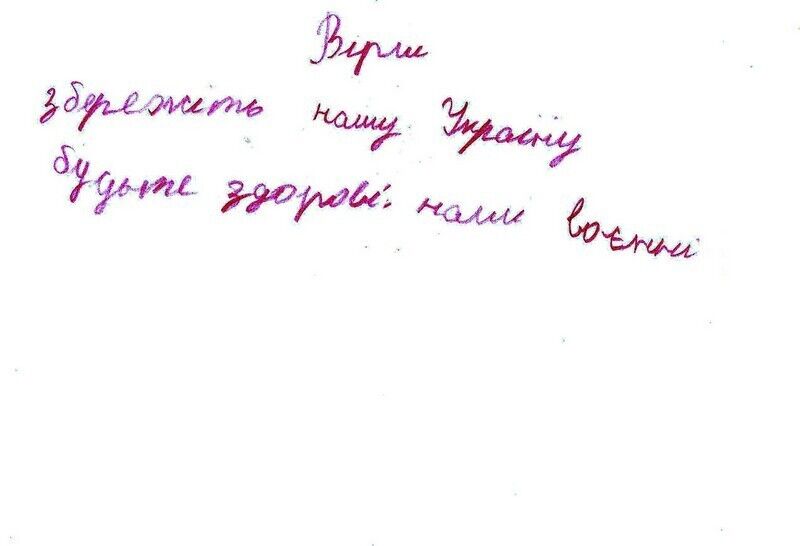 Вірш
збережіть нашу Україну
будьте здорові. наші воєнні